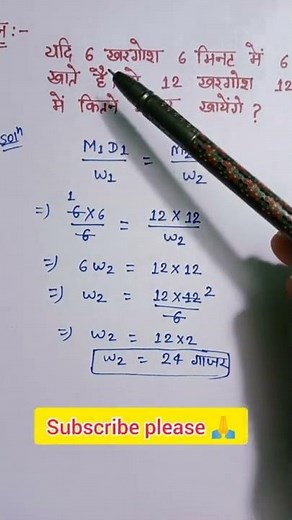 :-
यदि 6 खरगोश 6 मिनट में 6
खाते है 12 खरगोश 12
में कितने खायेंगे ?
Solⁿ
M₁D₁ / W₁ = / W₂
1
=) 6×6 / 6 = 12×12 / W₂
=) 6W₂ = 12×12
=) W₂ = 12×12 2 / 6
=) W₂ = 12×2
W₂ = 24 गाजर
Subscribe please 🙏